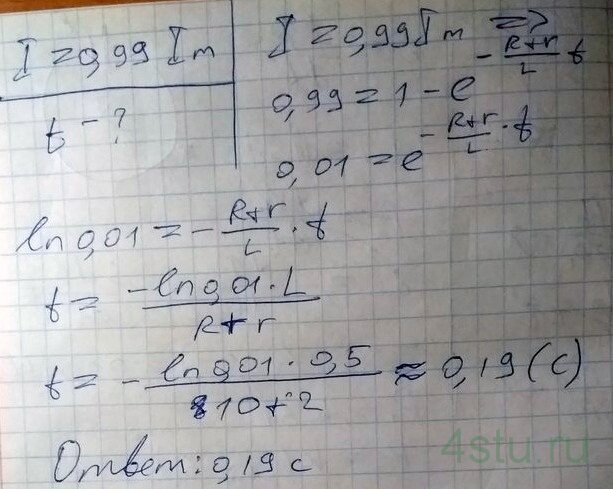 I = 0,99 Im
t - ?
I = 0,99 Im =>
0,99 = 1 - e^(-(R+r)/L t)
0,01 = e^(-(R+r)/L · t)
ln 0,01 = - (R+r)/L · t
t = (-ln 0,01 · L)/(R+r)
t = - (ln 0,01 · 0,5)/(10+2) ≈ 0,19 (с)
Ответ: 0,19 с
4stu.ru